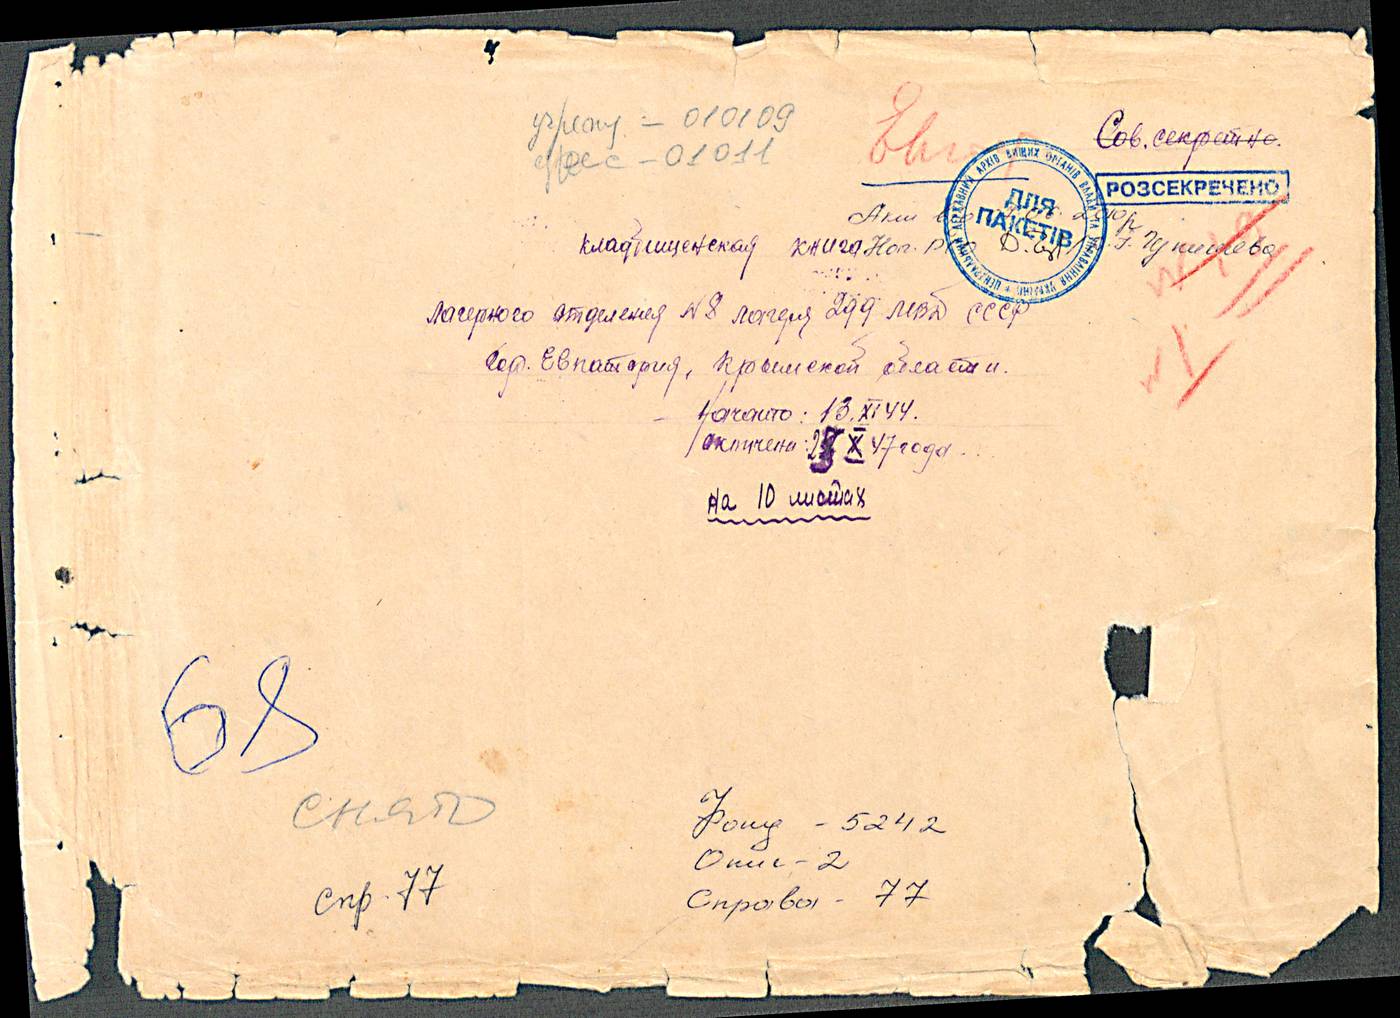 – 010109
– 01011
Сов. секретно.
РОЗСЕКРЕЧЕНО
ЦЕНТРАЛЬНИЙ ДЕРЖАВНИЙ АРХІВ ВИЩИХ ОРГАНІВ ВЛАДИ ТА УПРАВЛІННЯ УКРАЇНИ
ДЛЯ
ПАКЕТІВ
кладбищенская книга
Лагерного отделения №8 лагеря 299 МВД СССР
гор. Евпатория, Крымской области.
Начато: 13.XI 44.
окончена: X 47 года.
на 10 листах
68
снято
спр. 77
Фонд – 5242
Опис – 2
Справа – 77